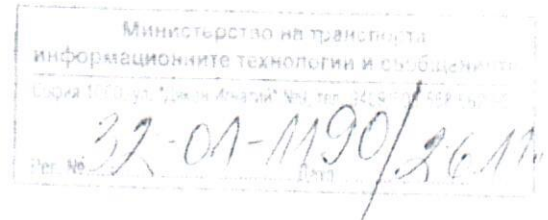 Министерство на транспорта
информационните технологии и съобщенията
София 1000, ул. "Дякон Игнатий" №
Рег. № 32-01-1190/26.11 Дата